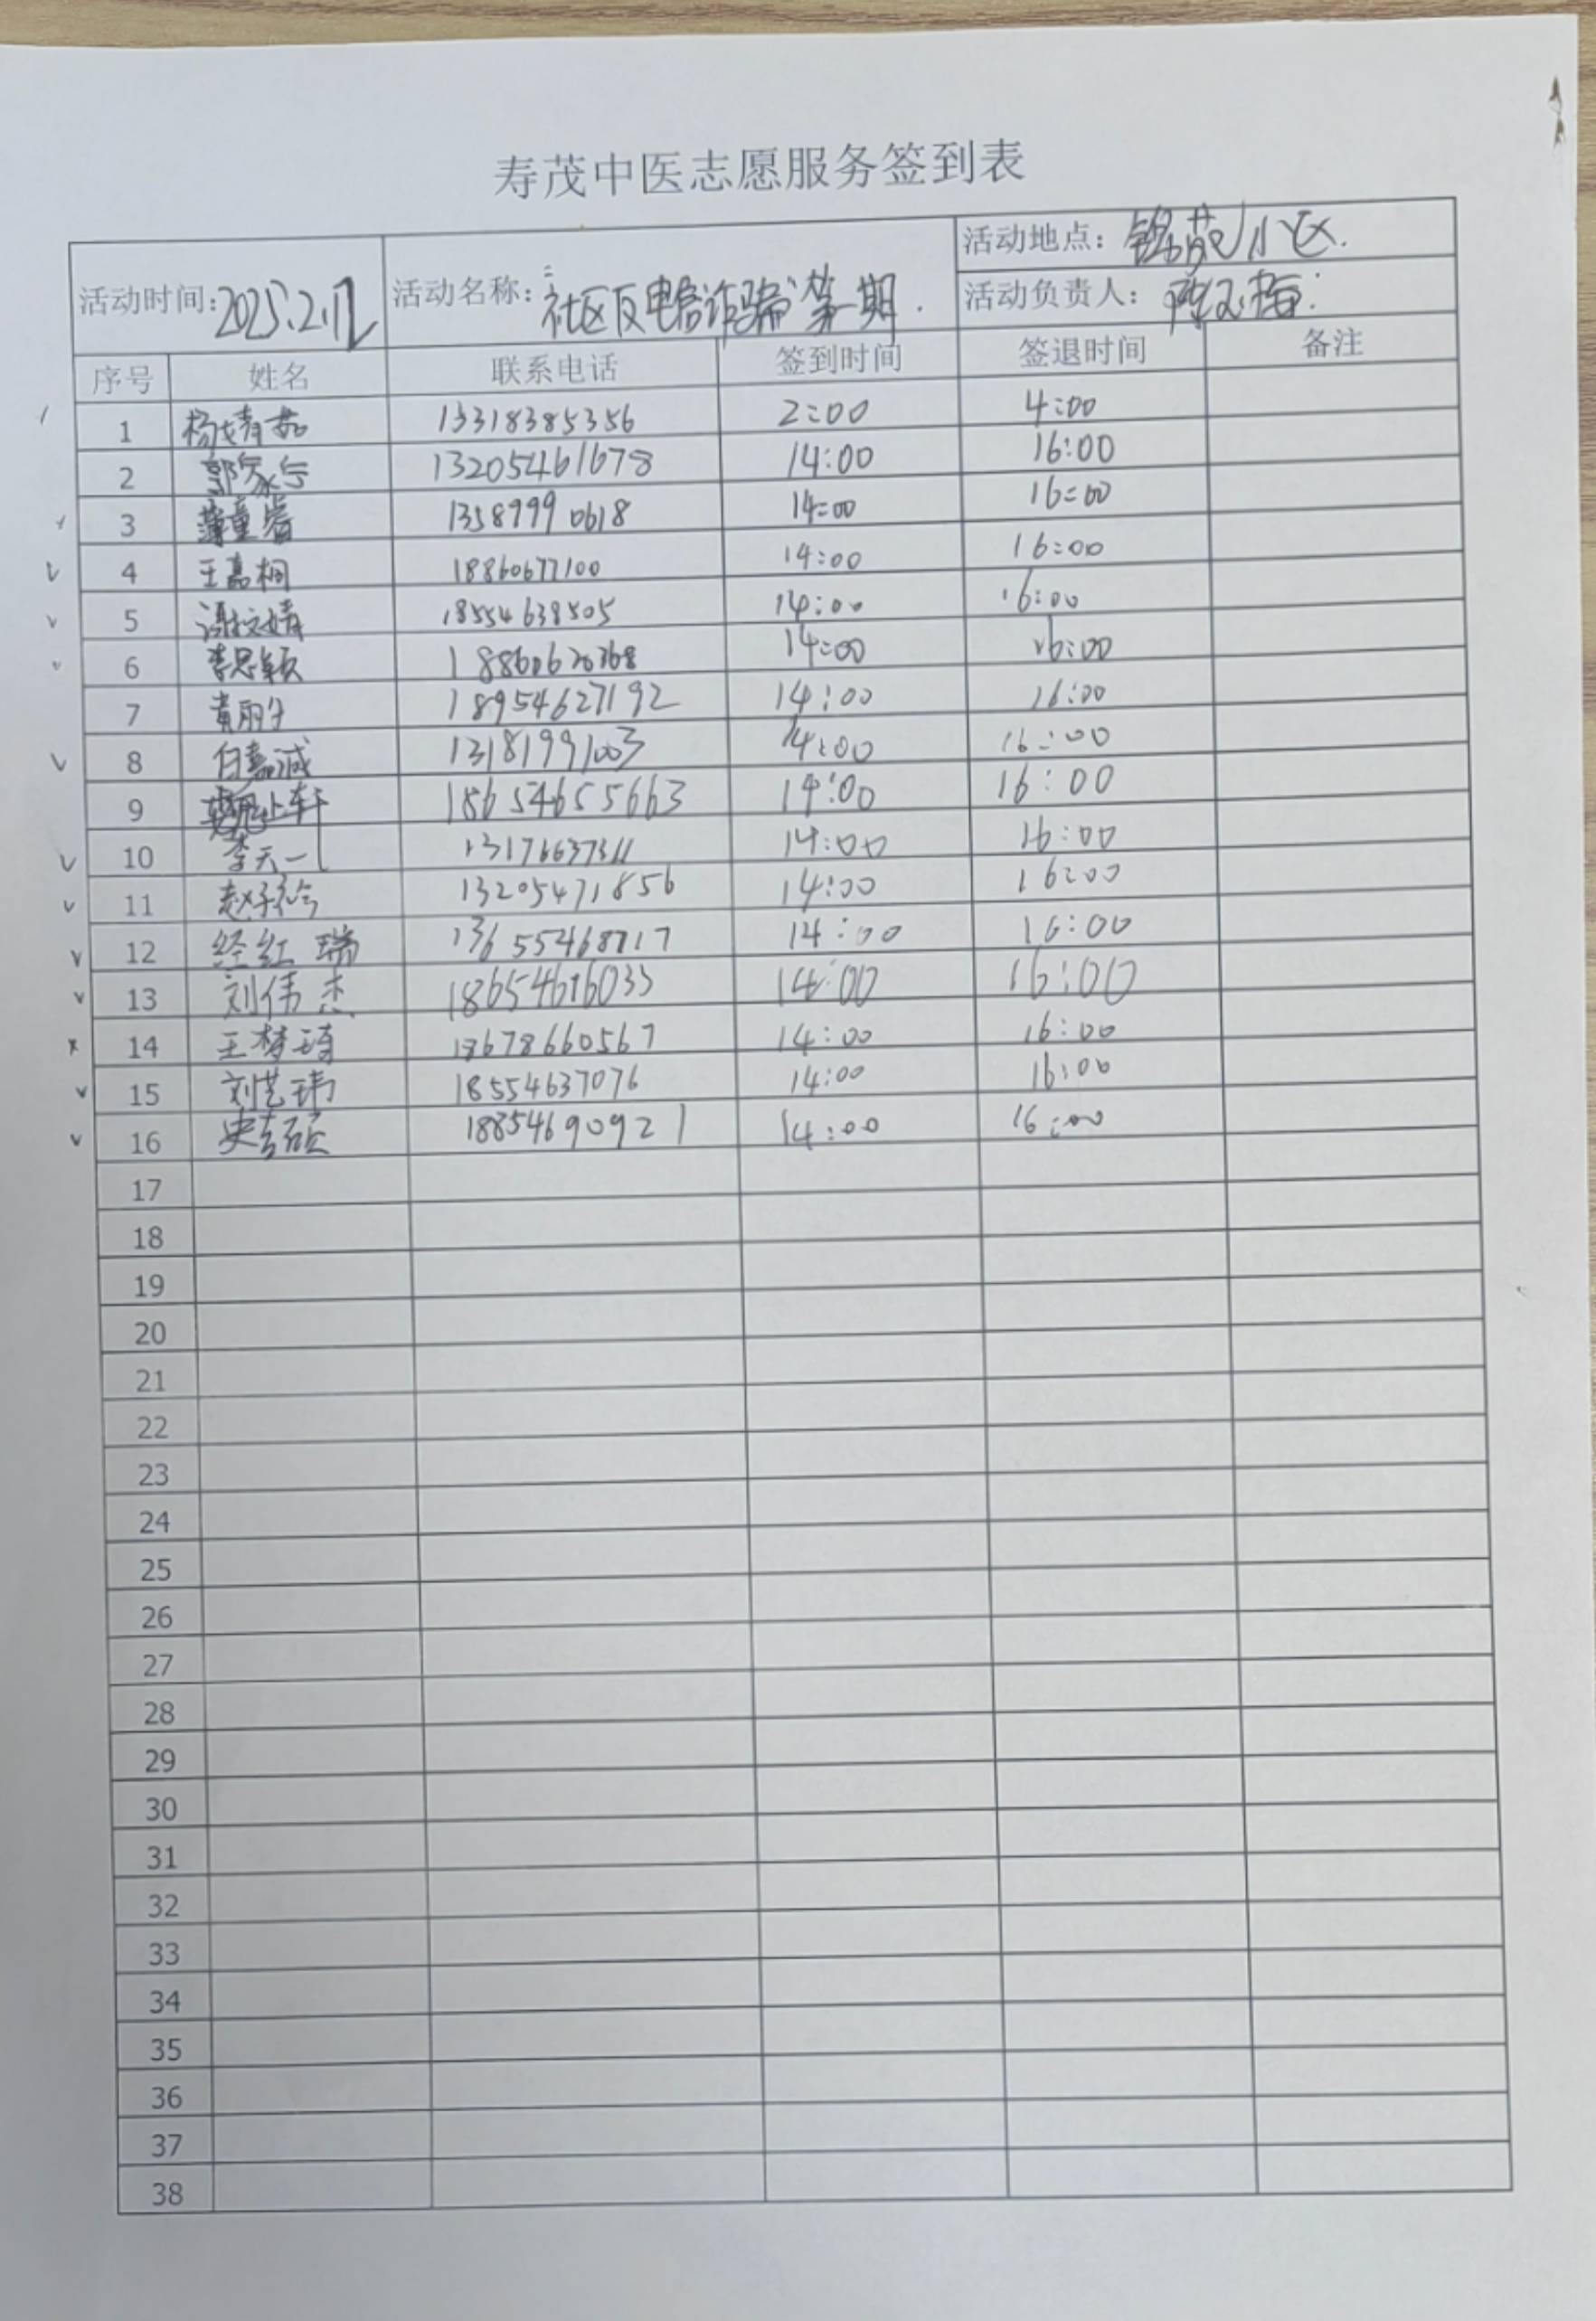 寿茂中医志愿服务签到表
活动时间: 2025.2.12 活动名称: 社区反电信诈骗 第一期. 活动地点: 锦苑小区.
活动负责人:
序号 姓名 联系电话 签到时间 签退时间 备注
1 杨婧茹 13318385356 2:00 4:00
2 13205461678 14:00 16:00
3 薄童睿 13589990618 14:00 16:00
4 王嘉桐 18860677100 14:00 16:00
5 18554638505 14:00 16:00
6 李思颖 18860620368 14:00 16:00
7 18954627192 14:00 16:00
8 白嘉诚 13181991003 14:00 16:00
9 18654655663 14:00 16:00
10 李天一 13176637311 14:00 16:00
11 13205471856 14:00 16:00
12 经红瑞 14:00 16:00
13 刘伟杰 18654616033 14:00 16:00
14 王梦琦 18678660567 14:00 16:00
15 刘艺玮 18554637076 14:00 16:00
16 史吉硕 18854690921 14:00 16:00
17
18
19
20
21
22
23
24
25
26
27
28
29
30
31
32
33
34
35
36
37
38